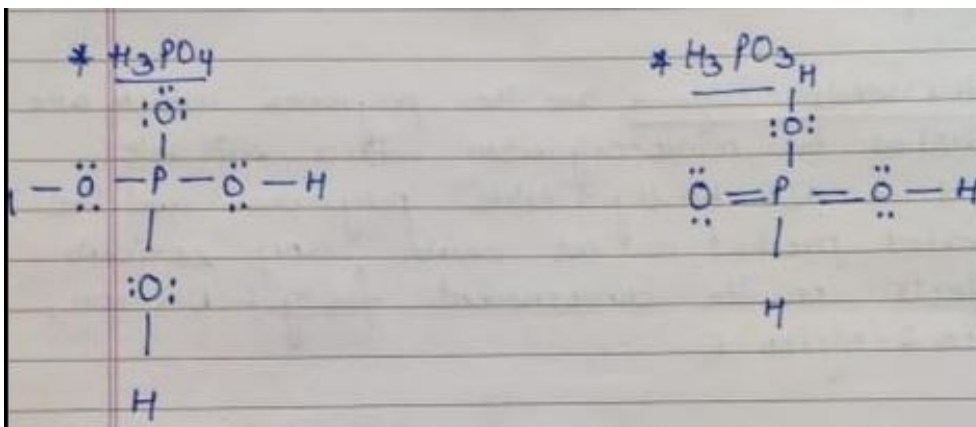 * H3PO4
:Ö:
– Ö – P – Ö – H
:O:
H
* H3PO3
H
:O:
Ö = P = Ö – H
H